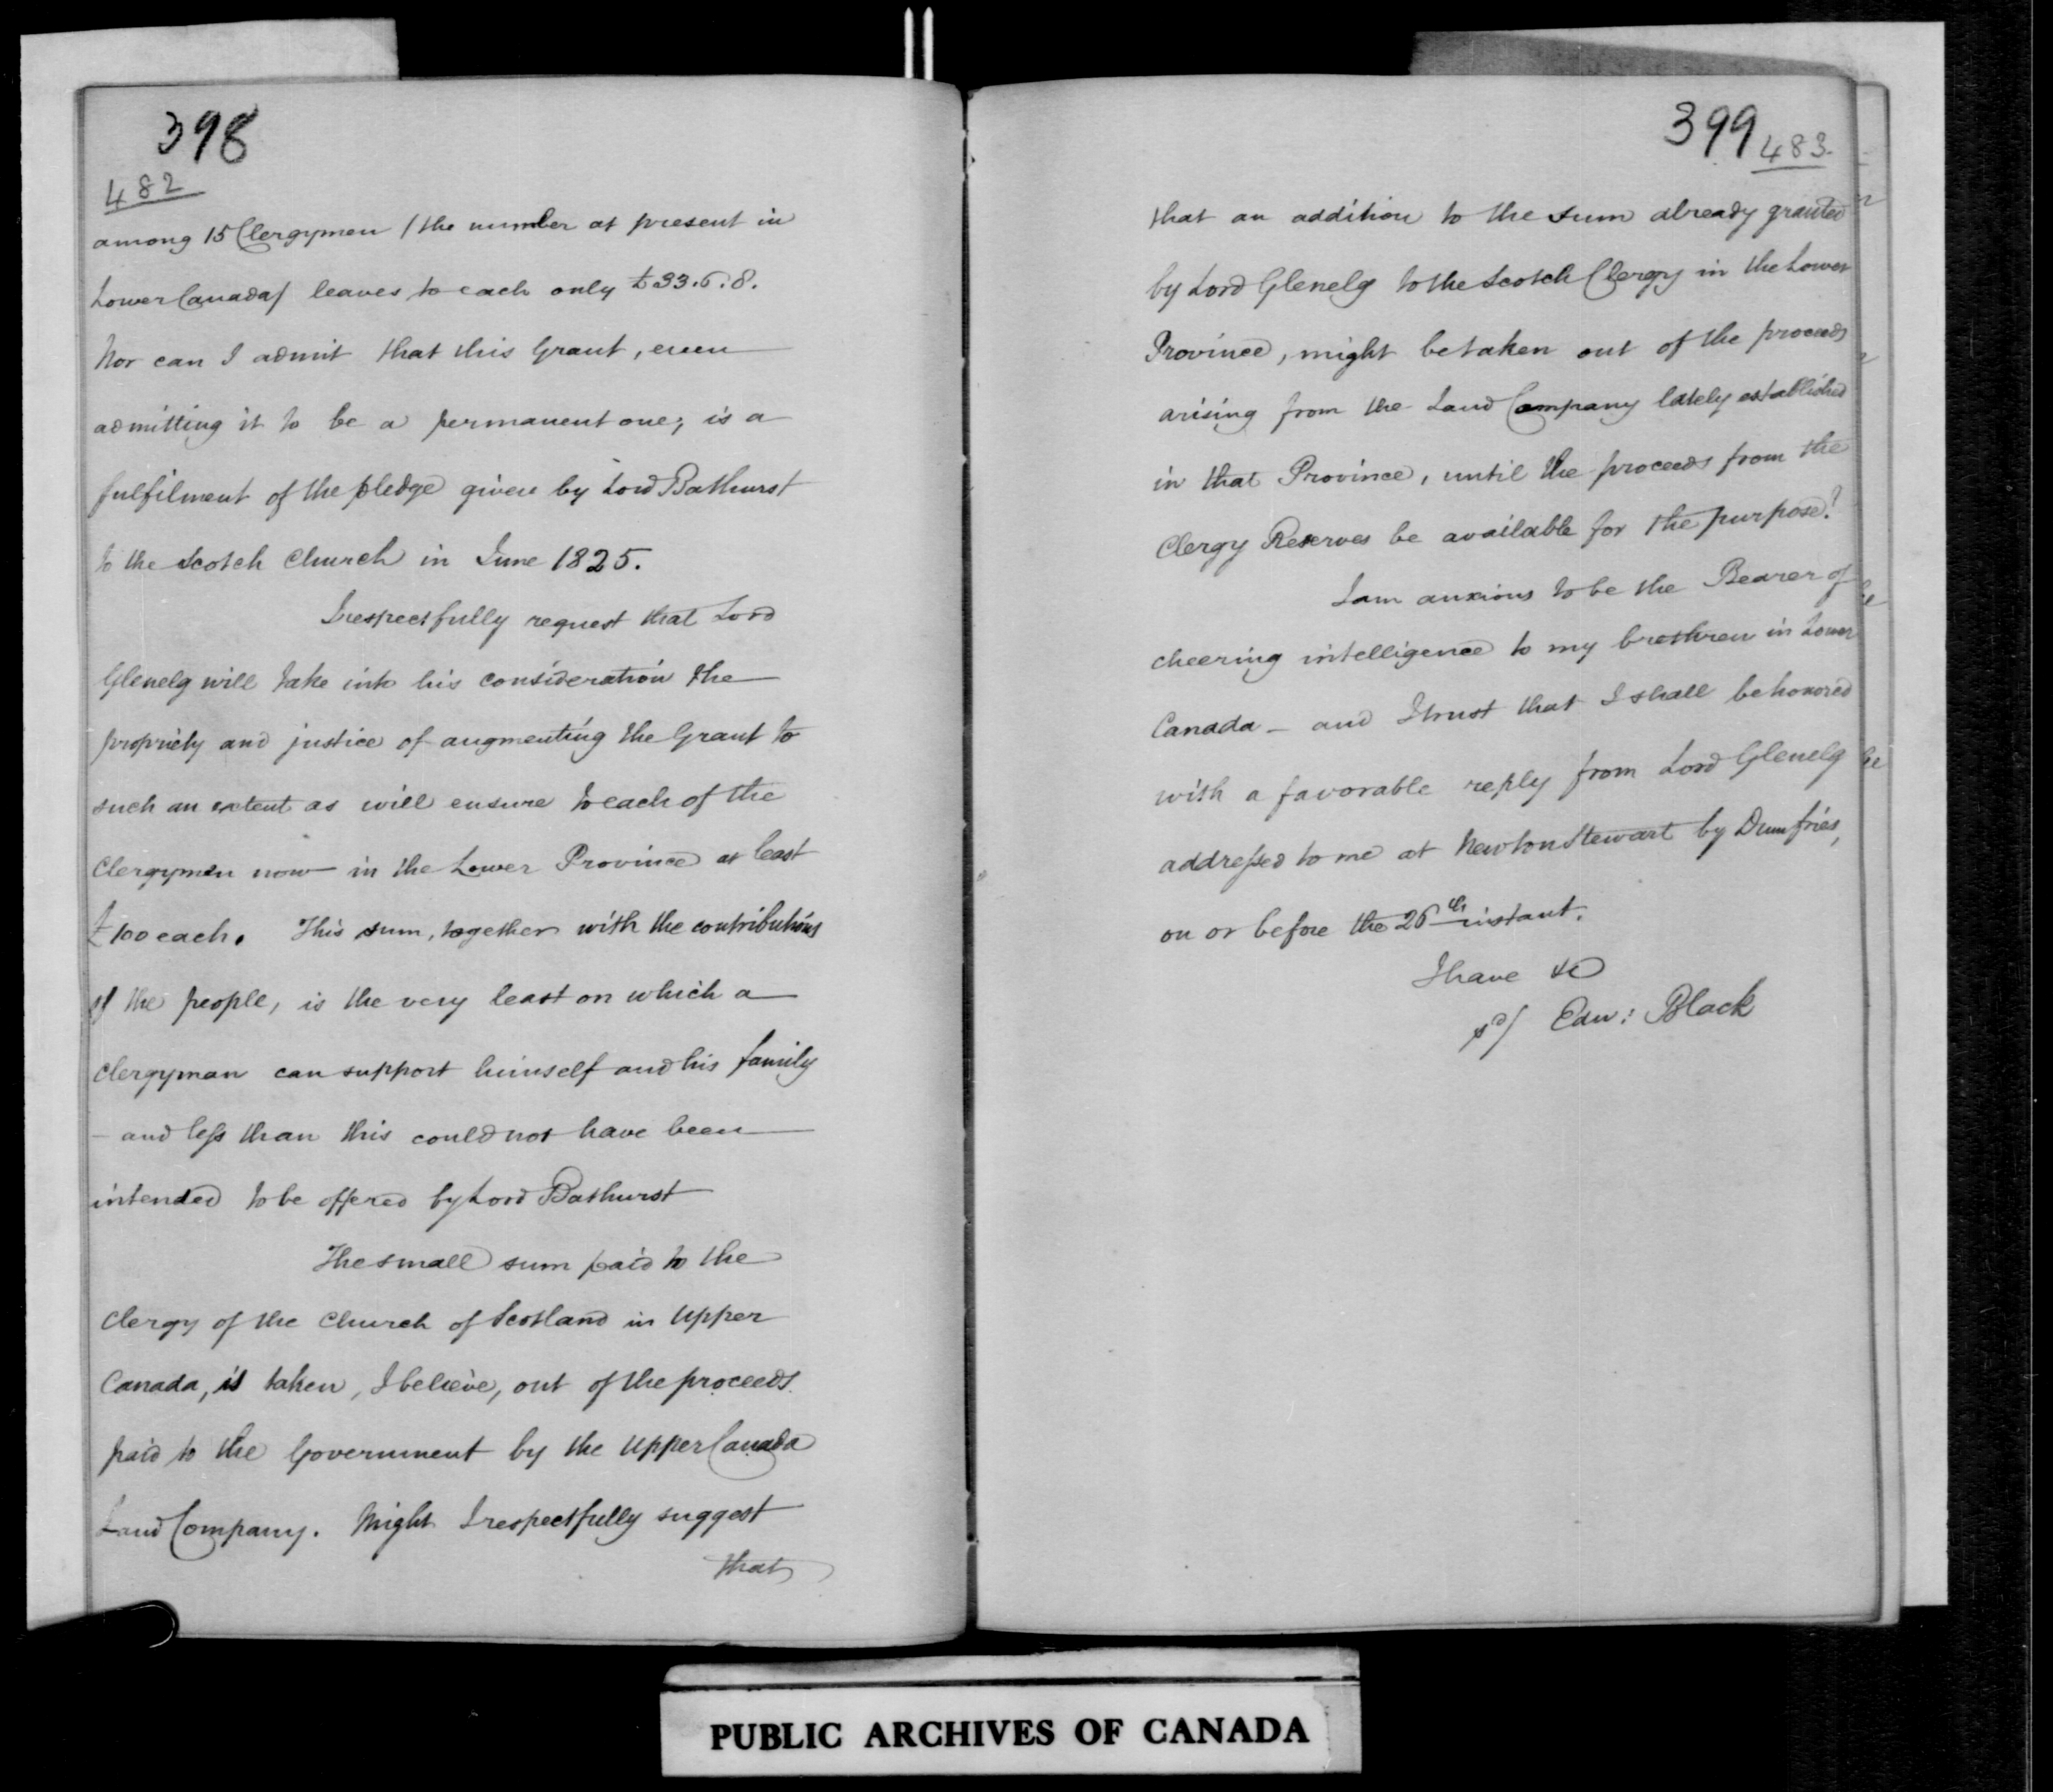 398
482
among 15 Clergymen / the number at present in
Lower Canada / leaves to each only £33.6.8.
Nor can I admit that this Grant, even
admitting it to be a permanent one; is a
fulfilment of the pledge given by Lord Bathurst
to the Scotch Church in June 1825.
I respectfully request that Lord
Glenelg will take into his consideration the
propriety and justice of augmenting the Grant to
such an extent as will ensure to each of the
Clergymen now in the Lower Province at least
£100 each. This sum, together with the contributions
of the people, is the very least on which a
Clergyman can support himself and his family
- and less than this could not have been
intended to be offered by Lord Bathurst
The small sum paid to the
Clergy of the Church of Scotland in Upper
Canada, is taken, I believe, out of the proceeds
paid to the Government by the Upper Canada
Land Company. Might I respectfully suggest
that
399
483.
that an addition to the sum already granted
by Lord Glenelg to the Scotch Clergy in the Lower
Province, might be taken out of the proceeds
arising from the Land Company lately established
in that Province, until the proceeds from the
Clergy Reserves be available for the purpose?
I am anxious to be the Bearer of
cheering intelligence to my brethren in Lower
Canada - and I trust that I shall be honored
with a favorable reply from Lord Glenelg
addressed to me at Newton Stewart by Dumfries,
on or before the 26th instant.
I have &c
sd/ Edw: Black
PUBLIC ARCHIVES OF CANADA